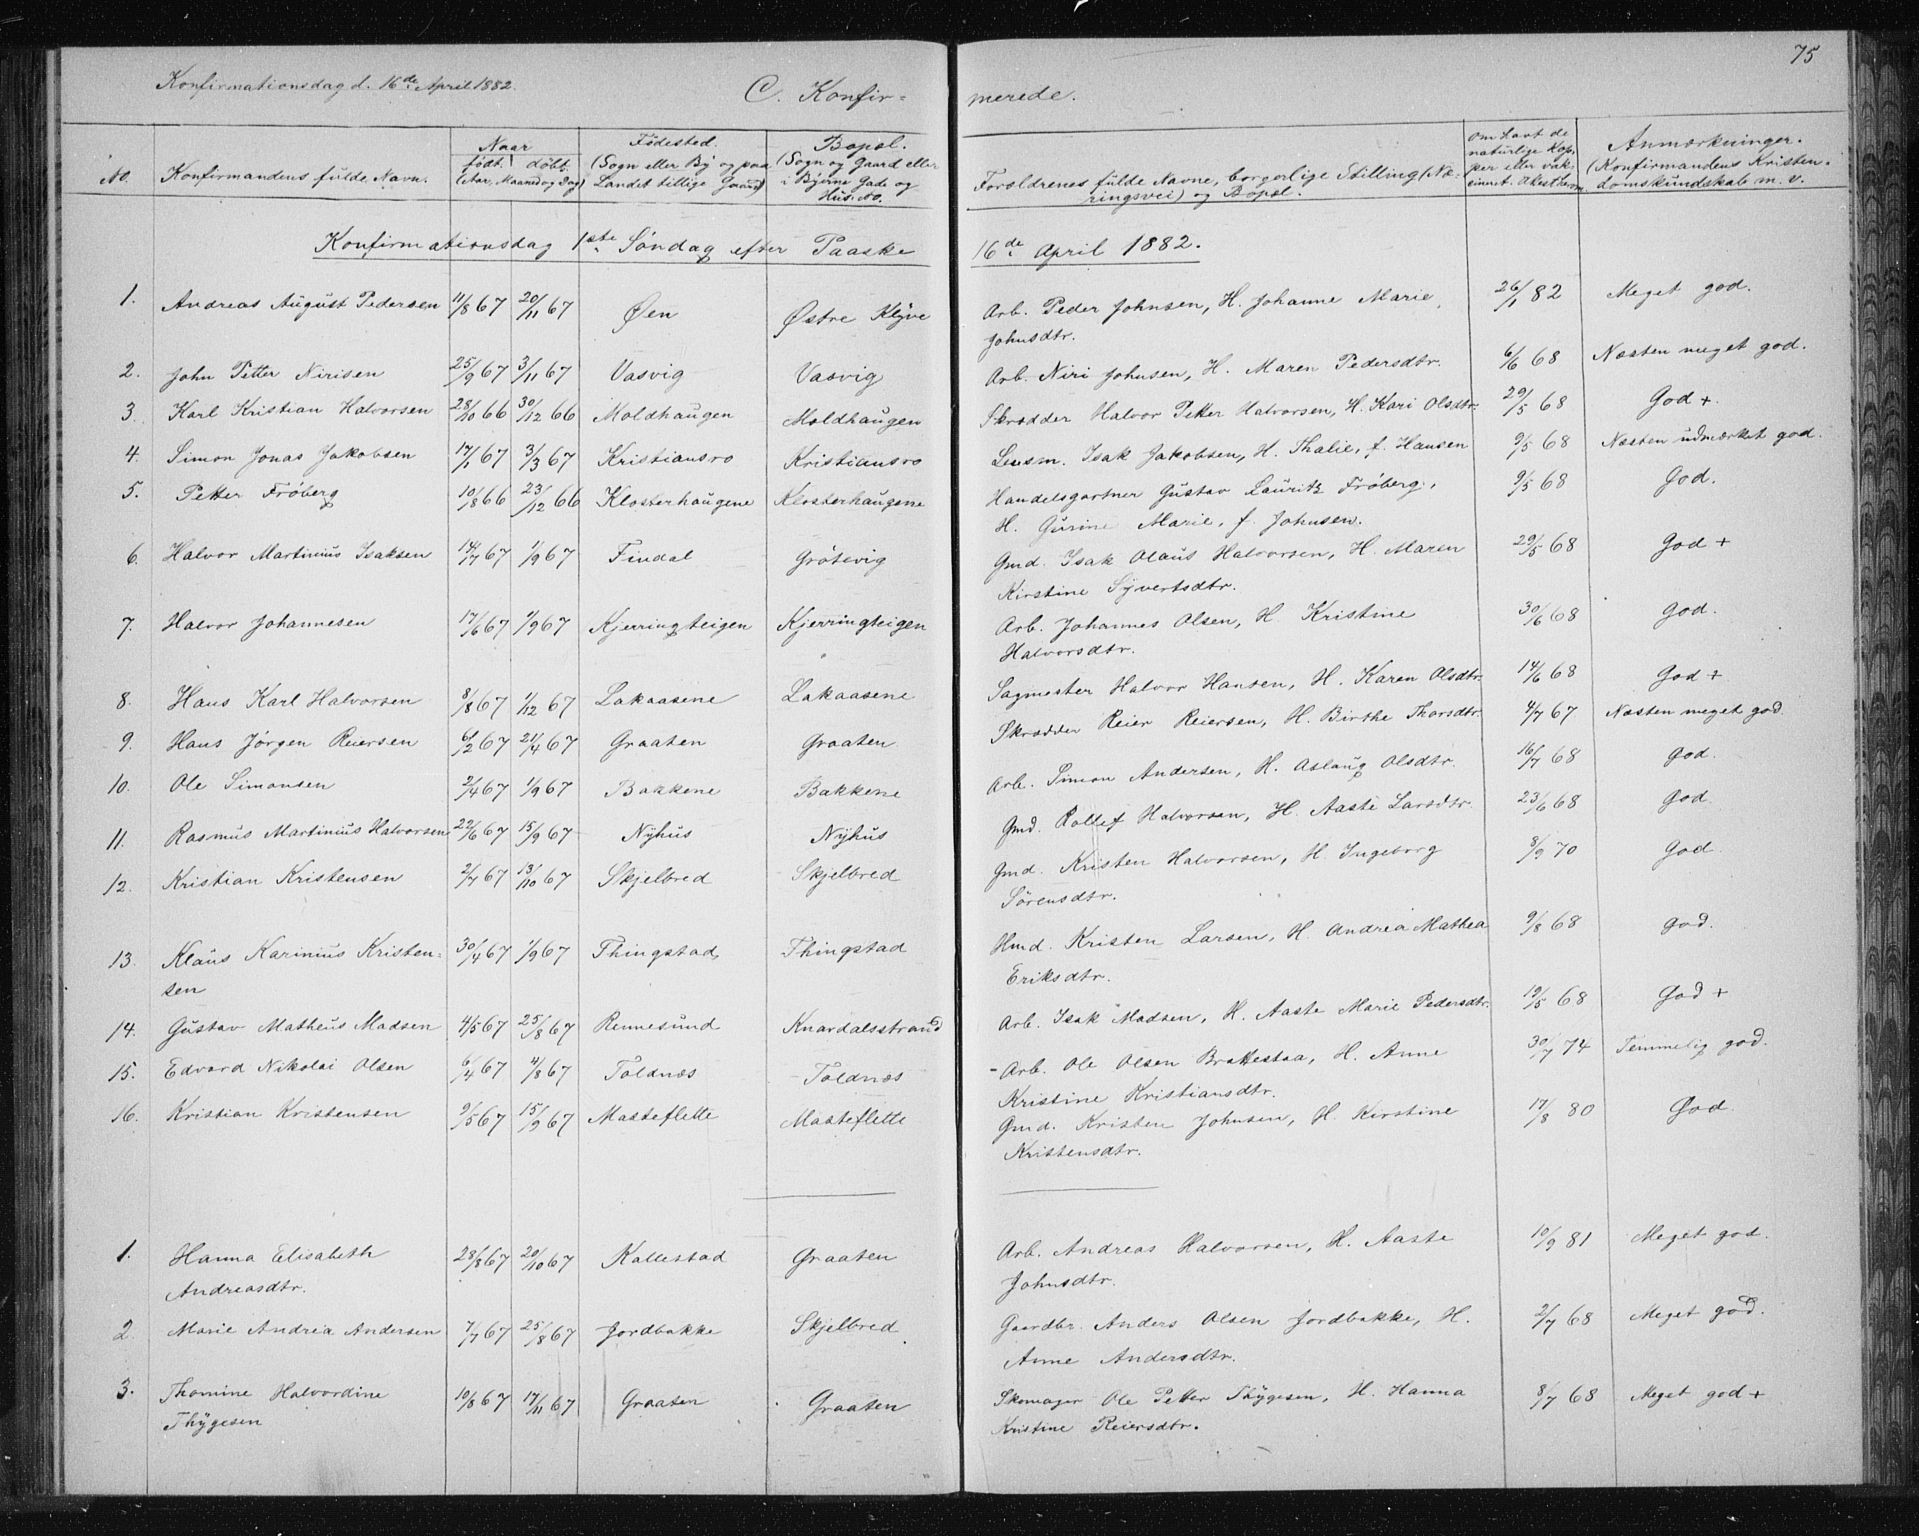 75
Konfirmationsdag d. 16de April 1882.
C. Konfir= merede.
No. Konfirmandens fulde Navn. Naar født. døbt. (Aar, Maaned og Dag) Fødested. (Sogn eller By og paa Landet tillige Gaard) Bopæl. (Sogn og Gaard eller i Byerne Gade og Hus. No. Forældrenes fulde Navne, borgerlige Stilling (Næringsvei) og Bopæl. Om havt de naturlige Kopper eller vaccineret. Anmærkninger. (Konfirmandens Kristendomskundskab m. v.
Konfirmationsdag 1ste Søndag efter Paaske 16de April 1882.
1. Andreas August Pedersen 11/8 67 20/11 67 Øen Østre Klyve Arb. Peder Johnsen, H. Johanne Marie 26/1 82 Meget god.
Johnsdtr.
2. John Petter Nirisen 25/9 67 3/11 67 Vasvig Vasvig Arb. Niri Johnsen, H. Maren Pedersdtr. 6/6 68 Næsten meget god.
3. Karl Kristian Halvorsen 28/10 66 30/12 66 Moldhaugen Moldhaugen Skrædder Halvor Petter Halvorsen, H. Kari Olsdtr. 29/5 68 God +.
4. Simon Jonas Jakobsen 17/1 67 3/3 67 Kristiansro Kristiansro Lensm. Isak Jakobsen, H. Thalie, f. Hansen 9/5 68 Næsten udmærket god.
5. Petter Frøberg 10/8 66 23/12 66 Klosterhaugene Klosterhaugene Handelsgartner Gustav Lauritz Frøberg, 9/5 68 God.
H. Gurine Marie, f. Johnsen.
6. Halvor Martinius Isaksen 14/7 67 1/9 67 Findal Grøtevig Gmd. Isak Olaus Halvorsen, H. Maren 29/5 68 God +
Kirstine Syvertsdtr.
7. Halvor Johannesen 17/6 67 1/9 67 Kjerringteigen Kjerringteigen Arb. Johannes Olsen, H. Kristine 30/6 68 God.
Halvorsdtr.
8. Hans Karl Halvorsen 8/8 67 1/12 67 Lakaasene Lakaasene Sagmester Halvor Hansen, H. Karen Olsdtr. 14/6 68 God +
9. Hans Jørgen Reiersen 6/2 67 21/4 67 Graaten Graaten Skrædder Reier Reiersen, H. Birthe Thorsdtr. 4/7 67 Næsten meget god
10. Ole Simonsen 2/4 67 1/9 67 Bakkene Bakkene Arb. Simon Andersen, H. Aslaug Olsdtr. 16/7 68 God.
11. Rasmus Martinius Halvorsen 22/6 67 15/9 67 Nyhus Nyhus Gmd. Rollef Halvorsen, H. Aaste Larsdtr. 23/6 68 God
12. Kristian Kristensen 2/7 67 13/10 67 Skjelbred Skjelbred Gmd. Kristen Halvorsen, H. Ingeborg 8/9 70 God.
Sørensdtr.
13. Klaus Karinius Kristen= 30/4 67 1/9 67 Thingstad Thingstad Hmd. Kristen Larsen, H. Andrea Mathea 9/8 68 God.
sen Eriksdtr.
14. Gustav Matheus Madsen 4/5 67 25/8 67 Rennesund Knardalsstrand Arb. Isak Madsen, H. Aaste Marie Pedersdtr. 19/5 68 God +
15. Edvard Nikolai Olsen 6/4 67 4/8 67 Toldnæs Toldnæs Arb. Ole Olsen Brattestaa, H. Anne 30/7 74 Temmelig god.
Kristine Kristiansdtr.
16. Kristian Kristensen 9/5 67 15/9 67 Masteflette Masteflette Gmd. Kristen Johnsen, H. Kirstine 17/8 80 God.
Kristensdtr.
1. Hanna Elisabeth 28/8 67 20/10 67 Kallestad Graaten Arb. Andreas Halvorsen, H. Aaste 10/9 81 Meget god.
Andreasdtr. Johnsdtr.
2. Marie Andrea Andersen 7/7 67 25/8 67 Jordbakke Skjelbred Gaardbr. Anders Olsen Jordbakke, H. 2/7 68 Meget god.
Anne Andersdtr.
3. Thomine Halvordine 10/8 67 17/11 67 Graaten Graaten Skomager Ole Petter Thygesen, H. Hanna 8/7 68 Meget god +
Thygesen Kristine Reiersdtr.